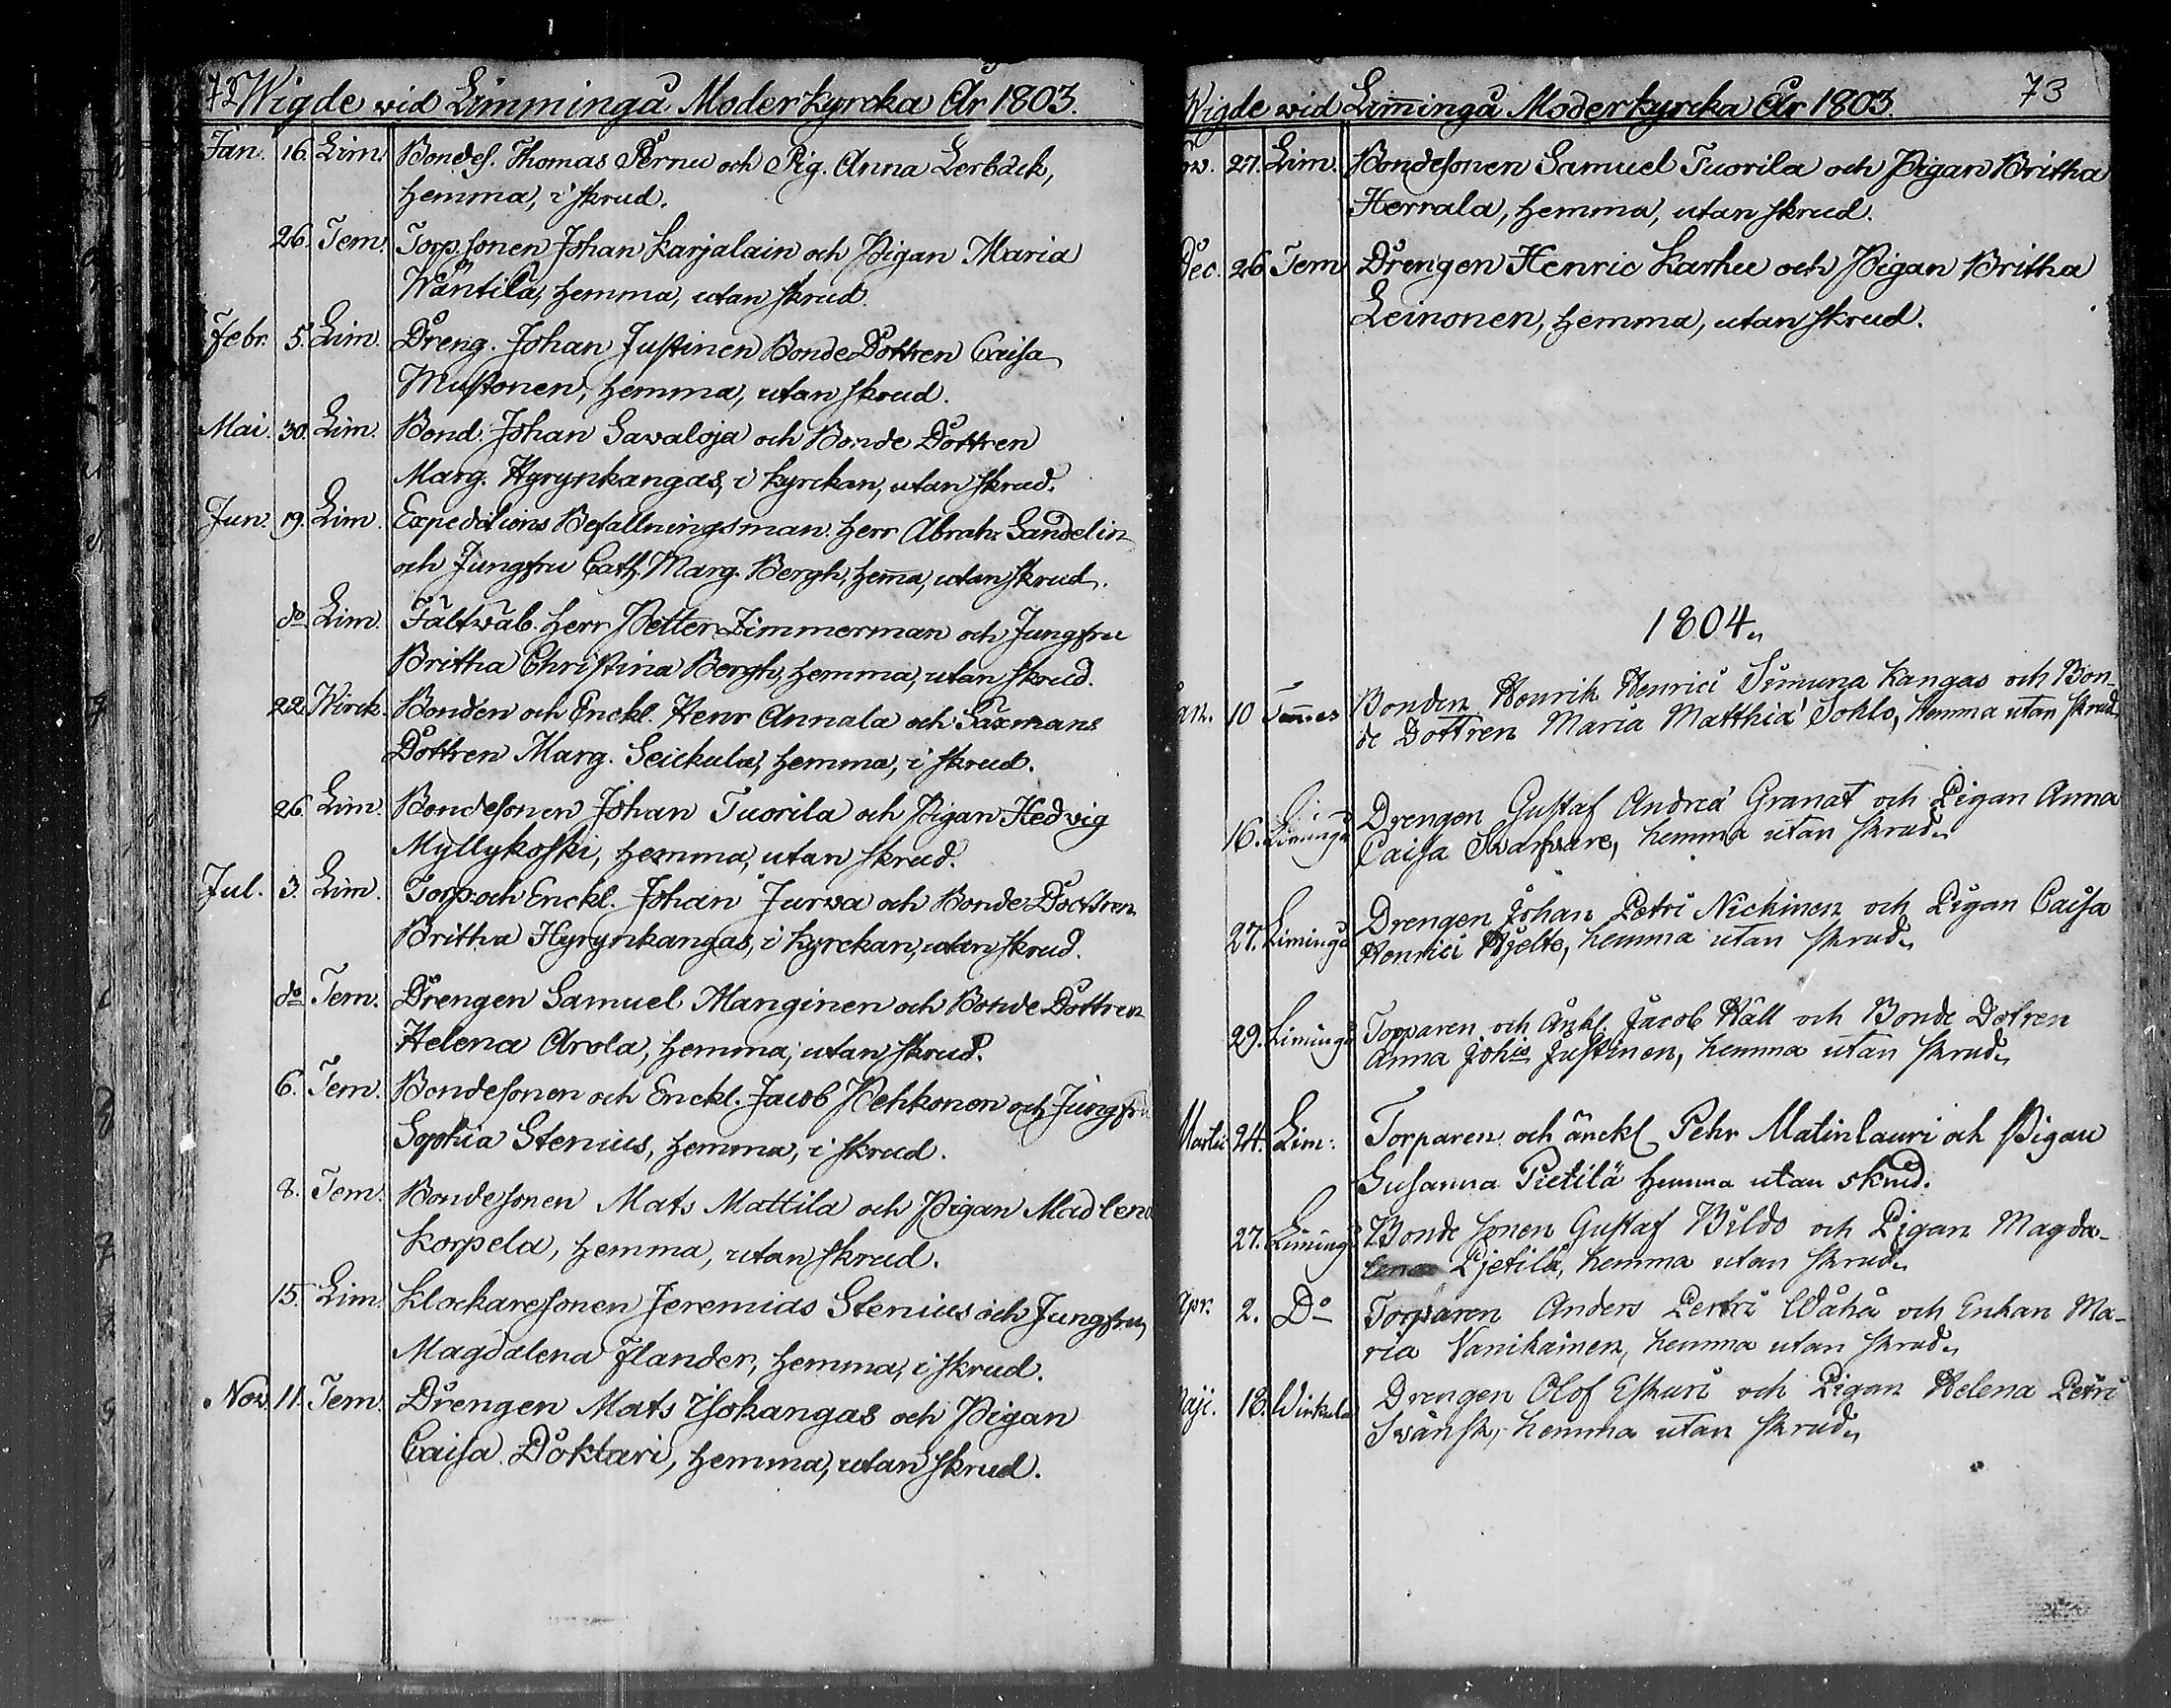 72 Wigde vid Limminga Moderkyrcka År 1803.
Jan. 16. Lim. Bondes. Thomas Pernu och Pig. Anna Lerbäck,
hemma, i skrud.
26. Tem. Torp.sonen Johan Karjalain och Pigan Maria
Wäntilä, hemma, utan skrud.
Febr. 5. Lim. Dreng. Johan Justinen Bonde Dottren Caisa
Mustonen, hemma, utan skrud.
Mai. 30. Lim. Bond. Johan Savaloja och Bonde Dottren
Marg. Hyrynkangas, i kyrckan, utan skrud.
Jun. 19. Lim. Expeditions Befallningsman Herr Abrah. Sandelin
och Jungfru Cath. Marg. Bergh, hem̅a, utan skrud.
do Lim. Fältwäb. Herr Petter Zimmerman och Jungfru
Britha Christina Bergh, hemma, utan skrud.
22. Wirck. Bonden och Enckl. Henr Annala och Saxmans
Dottren Marg. Seickula, hemma, i skrud.
26. Lim. Bondesonen Johan Tuorila och Pigan Hedvig
Myllykoski, hemma, utan skrud.
Jul. 3. Lim. Torp. och Enckl. Johan Jurva och Bonde Dottren
Britha Hyrynkangas, i kyrckan, utan skrud.
do Tem. Drengen Samuel Manginen och Bonde Dottren
Helena Arola, hemma, utan skrud.
6. Tem. Bondesonen och Enckl. Jacob Pehkonen och Jungfru
Sophia Stenius, hemma, i skrud.
8. Tem. Bondesonen Mats Mattila och Pigan Madlena
Korpela, hemma, utan skrud.
15. Lim. Klockaresonen Jeremias Stenius och Jungfru
Magdalena Flander, hemma, i skrud.
Nov. 11. Tem. Drengen Mats Isokangas och Pigan
Caisa Doktari, hemma, utan skrud.
Wigde vid Lim̅inga Moderkyrcka År 1803. 73
ov. 27. Lim. Bondesonen Samuel Tuorila och Pigan Britha
Herrala, hemma, utan skrud.
Dec. 26. Tem Drengen Henric Karhu och Pigan Britha
Leinonen, hemma, utan skrud.
1804.
an. 10 Tem̅es Bonden Henrik Henrici Simuna Kangas och Bon-
de Dottren Maria Matthiæ Soklo, hemma utan skrud
16. Liminga Drengen Gustaf Andreæ Granat och Pigan Anna
Caisa Swarfvare, hemma utan skrud.
27. Liminga Drengen Johan Petri Nickinen och Pigan Caisa
Henrici Hjelte, hemma utan skrud.
29. Liminga Torparen och Änkl. Jacob Häll och Bonde Dotren
Anna Johis Justinen, hemma utan skrud.
Martii 24. Lim: Torparen och änckl Pehr Matinlauri och Pigan
Susanna Pietilä hemma utan skrud.
27. Liming Bonde sonen Gustaf Bildo och Pigan Magda-
lena Pjetilä, hemma utan skrud.
Apr. 2. Do Torparen Anders Pertri Wähä och Enkan Ma-
ria Vanikainen, hemma utan skrud.
Maji. 18. Wirkula Drengen Olof Eskuri och Pigan Helena Petri
Svänsk, hemma utan skrud.